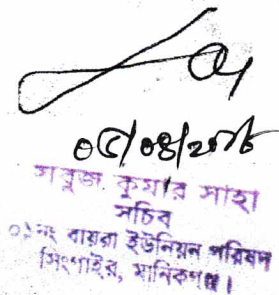 ০৫/০৪/২০২৬
সবুজ কুমার সাহা
সচিব
০১নং বায়রা ইউনিয়ন পরিষদ
সিংগাইর, মানিকগঞ্জ।